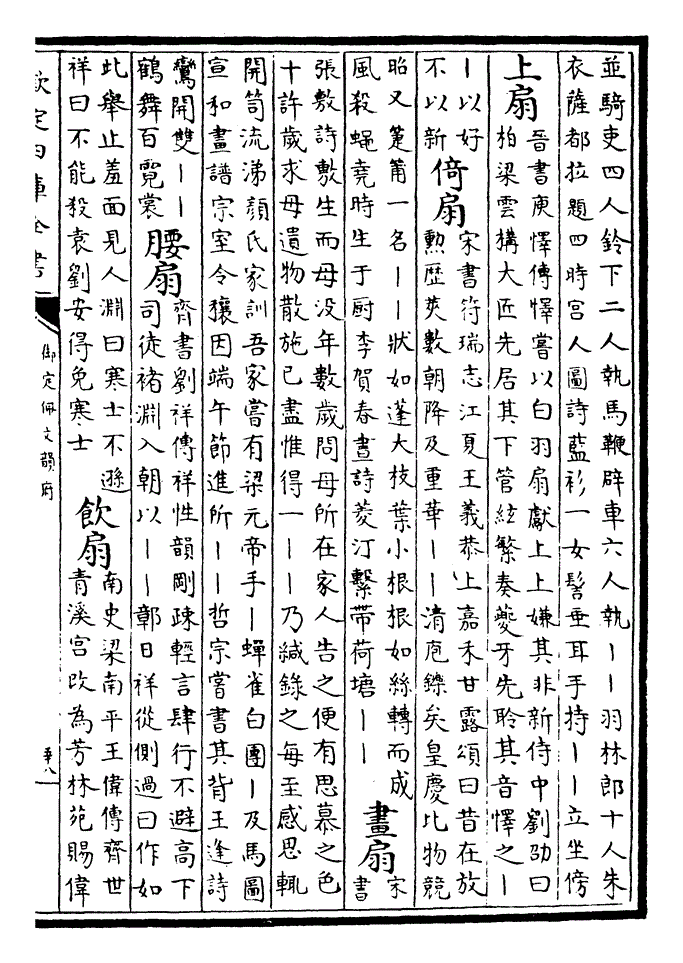 並騎吏四人鈴下二人執馬鞭辟車六人執||羽林郎十人朱
衣薩都拉題四時宮人圖詩藍衫一女髻垂耳手持||立坐傍
上扇
晉書庾懌傳懌嘗以白羽扇獻上上嫌其非新侍中劉劭曰
柏梁雲構大匠先居其下管絃繁奏夔牙先聆其音懌之|
|以好
不以新
倚扇
宋書符瑞志江夏王義恭上嘉禾甘露頌曰昔在放
勲歷莢數朝降及重華||清庖鑠矣皇慶比物競
昭又箑莆一名||狀如蓬大枝葉小根根如絲轉而成
風殺蝇堯時生于厨李賀春晝詩菱汀繫帶荷塘||
畫扇
宋
書
張敷詩敷生而母没年數歲問母所在家人告之便有思慕之色
十許歲求母遺物散施已盡惟得一||乃緘錄之每至感思輒
開笥流涕顔氏家訓吾家嘗有梁元帝手|蟬雀白團|及馬圖
宣和畫譜宗室令穰因端午節進所||哲宗嘗書其背王逢詩
鸞開雙||
鶴舞百霓裳
腰扇
齊書劉祥傳祥性韻剛疎輕言肆行不避高下
司徒褚淵入朝以||鄣日祥從側過曰作如
此舉止羞面見人淵曰寒士不遜
祥曰不能殺袁劉安得免寒士
飲扇
南史梁南平王偉傳齊世
青溪宮改為芳林苑賜偉
欽定四庫全書
御定佩文韻府